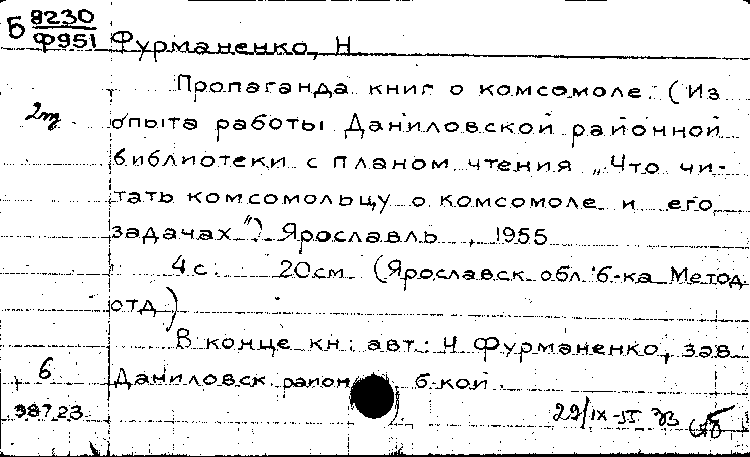 Б 8230
Ф951 Фурманенко, Н
Пропаганда книг о комсомоле. (Из
опыта работы Даниловской районной
библиотеки с планом чтения „Что чи-
тать комсомольцу о комсомоле и его
задачах"). Ярославль, 1955
4 с. 20 см. (Ярославск. обл. б-ка Метод.
отд.)
В конце кн.: авт.: Н Фурманенко, зав.
6 Даниловск. район б-кой.
98723 29/IX-55